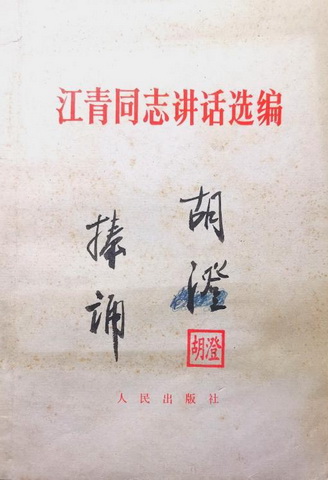 江青同志讲话选编
胡澄
捧诵
胡澄
人民出版社